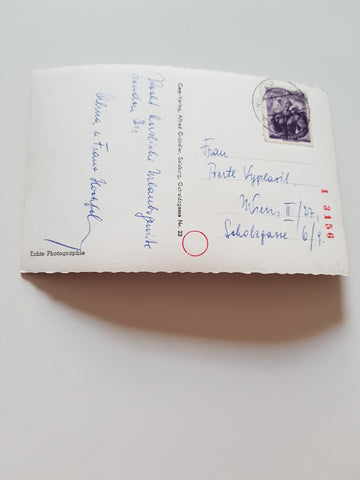 Recht herzliche Urlaubsgrüße
senden Dir
Wilma u Franz
Echte Photographie
Cosy-Verlag, Alfred Gründler, Salzburg, Getreidegasse Nr. 22
Frau
Wien, II/27,
Scholzgasse 6/9.
1 3156